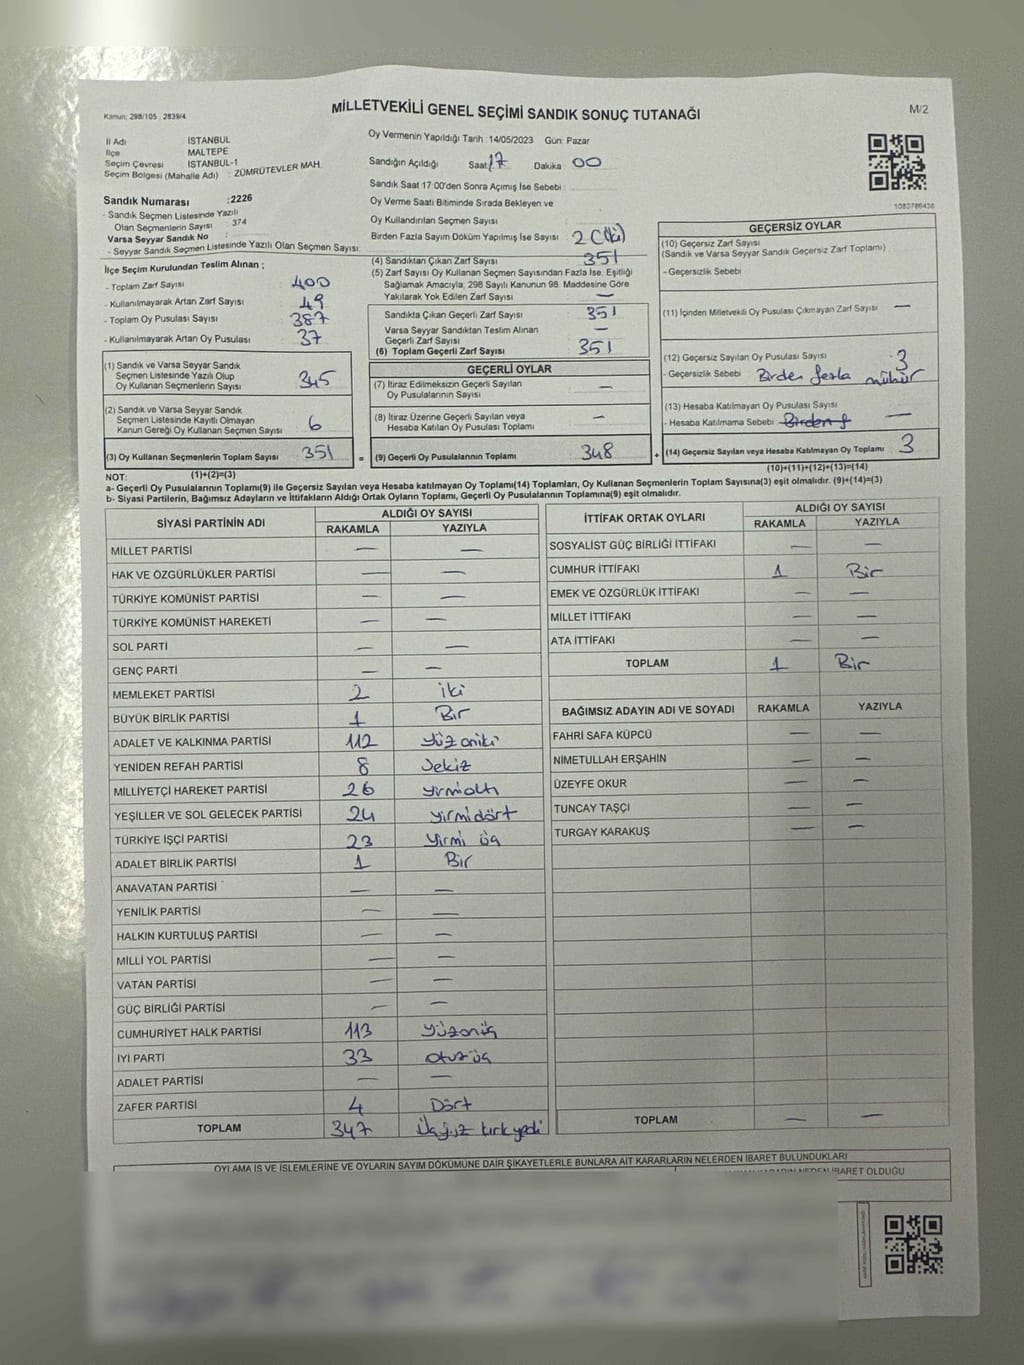 MİLLETVEKİLİ GENEL SEÇİMİ SANDIK SONUÇ TUTANAĞI
M/2
Kanun: 298/105 2839/4
İl Adı İSTANBUL
İlçe MALTEPE
Seçim Çevresi İSTANBUL-1
Seçim Bölgesi (Mahalle Adı) : ZÜMRÜTEVLER MAH.
Sandık Numarası :2226
- Sandık Seçmen Listesinde Yazılı
Olan Seçmenlerin Sayısı : 374
Varsa Seyyar Sandık No :
- Seyyar Sandık Seçmen Listesinde Yazılı Olan Seçmen Sayısı:
Oy Vermenin Yapıldığı Tarih :14/05/2023 Gün: Pazar
Sandığın Açıldığı Saat: 17 Dakika 00
Sandık Saat 17:00'den Sonra Açılmış İse Sebebi :
Oy Verme Saati Bitiminde Sırada Bekleyen ve
Oy Kullandırılan Seçmen Sayısı :
Birden Fazla Sayım Döküm Yapılmış İse Sayısı 2 (İki)
1083786438
İlçe Seçim Kurulundan Teslim Alınan ;
- Toplam Zarf Sayısı : 400
- Kullanılmayarak Artan Zarf Sayısı : 49
- Toplam Oy Pusulası Sayısı : 387
- Kullanılmayarak Artan Oy Pusulası : 37
(1) Sandık ve Varsa Seyyar Sandık
Seçmen Listesinde Yazılı Olup
Oy Kullanan Seçmenlerin Sayısı : 345
(2) Sandık ve Varsa Seyyar Sandık
Seçmen Listesinde Kayıtlı Olmayan
Kanun Gereği Oy Kullanan Seçmen Sayısı : 6
(3) Oy Kullanan Seçmenlerin Toplam Sayısı : 351
(4) Sandıktan Çıkan Zarf Sayısı : 351
(5) Zarf Sayısı Oy Kullanan Seçmen Sayısından Fazla İse, Eşitliği
Sağlamak Amacıyla; 298 Sayılı Kanunun 98. Maddesine Göre
Yakılarak Yok Edilen Zarf Sayısı : —
Sandıkta Çıkan Geçerli Zarf Sayısı : 351
Varsa Seyyar Sandıktan Teslim Alınan
Geçerli Zarf Sayısı : —
(6) Toplam Geçerli Zarf Sayısı : 351
GEÇERLİ OYLAR
(7) İtiraz Edilmeksizin Geçerli Sayılan
Oy Pusulalarının Sayısı : —
(8) İtiraz Üzerine Geçerli Sayılan veya
Hesaba Katılan Oy Pusulası Toplamı : —
= (9) Geçerli Oy Pusulalarının Toplamı : 348
GEÇERSİZ OYLAR
(10) Geçersiz Zarf Sayısı
(Sandık ve Varsa Seyyar Sandık Geçersiz Zarf Toplamı)
- Geçersizlik Sebebi
(11) İçinden Milletvekili Oy Pusulası Çıkmayan Zarf Sayısı : —
(12) Geçersiz Sayılan Oy Pusulası Sayısı : 3
- Geçersizlik Sebebi : Birden fazla mühür
(13) Hesaba Katılmayan Oy Pusulası Sayısı :
- Hesaba Katılmama Sebebi : Birden f —
+ (14) Geçersiz Sayılan veya Hesaba Katılmayan Oy Toplamı : 3
NOT: (1)+(2)=(3)
(10)+(11)+(12)+(13)=(14)
a- Geçerli Oy Pusulalarının Toplamı(9) ile Geçersiz Sayılan veya Hesaba katılmayan Oy Toplamı(14) Toplamları, Oy Kullanan Seçmenlerin Toplam Sayısına(3) eşit olmalıdır. (9)+(14)=(3)
b- Siyasi Partilerin, Bağımsız Adayların ve İttifakların Aldığı Ortak Oyların Toplamı, Geçerli Oy Pusulalarının Toplamına(9) eşit olmalıdır.
SİYASİ PARTİNİN ADI ALDIĞI OY SAYISI
RAKAMLA YAZIYLA
MİLLET PARTİSİ — —
HAK VE ÖZGÜRLÜKLER PARTİSİ — —
TÜRKİYE KOMÜNİST PARTİSİ — —
TÜRKİYE KOMÜNİST HAREKETİ — —
SOL PARTİ — —
GENÇ PARTİ — —
MEMLEKET PARTİSİ 2 iki
BÜYÜK BİRLİK PARTİSİ 1 Bir
ADALET VE KALKINMA PARTİSİ 112 yüzoniki
YENİDEN REFAH PARTİSİ 8 Sekiz
MİLLİYETÇİ HAREKET PARTİSİ 26 yirmialtı
YEŞİLLER VE SOL GELECEK PARTİSİ 24 yirmidört
TÜRKİYE İŞÇİ PARTİSİ 23 yirmi üç
ADALET BİRLİK PARTİSİ 1 Bir
ANAVATAN PARTİSİ — —
YENİLİK PARTİSİ — —
HALKIN KURTULUŞ PARTİSİ — —
MİLLİ YOL PARTİSİ — —
VATAN PARTİSİ — —
GÜÇ BİRLİĞİ PARTİSİ — —
CUMHURİYET HALK PARTİSİ 113 yüzonüç
İYİ PARTİ 33 otuzüç
ADALET PARTİSİ — —
ZAFER PARTİSİ 4 Dört
TOPLAM 347 Üçyüz kırk yedi
İTTİFAK ORTAK OYLARI ALDIĞI OY SAYISI
RAKAMLA YAZIYLA
SOSYALİST GÜÇ BİRLİĞİ İTTİFAKI — —
CUMHUR İTTİFAKI 1 Bir
EMEK VE ÖZGÜRLÜK İTTİFAKI — —
MİLLET İTTİFAKI — —
ATA İTTİFAKI — —
TOPLAM 1 Bir
BAĞIMSIZ ADAYIN ADI VE SOYADI RAKAMLA YAZIYLA
FAHRİ SAFA KÜPCÜ — —
NİMETULLAH ERŞAHİN — —
ÜZEYFE OKUR — —
TUNCAY TAŞÇI — —
TURGAY KARAKUŞ — —
TOPLAM — —
OYLAMA İŞ VE İŞLEMLERİNE VE OYLARIN SAYIM DÖKÜMÜNE DAİR ŞİKAYETLERLE BUNLARA AİT KARARLARIN NELERDEN İBARET BULUNDUKLARI
NEDEN İBARET OLDUĞU